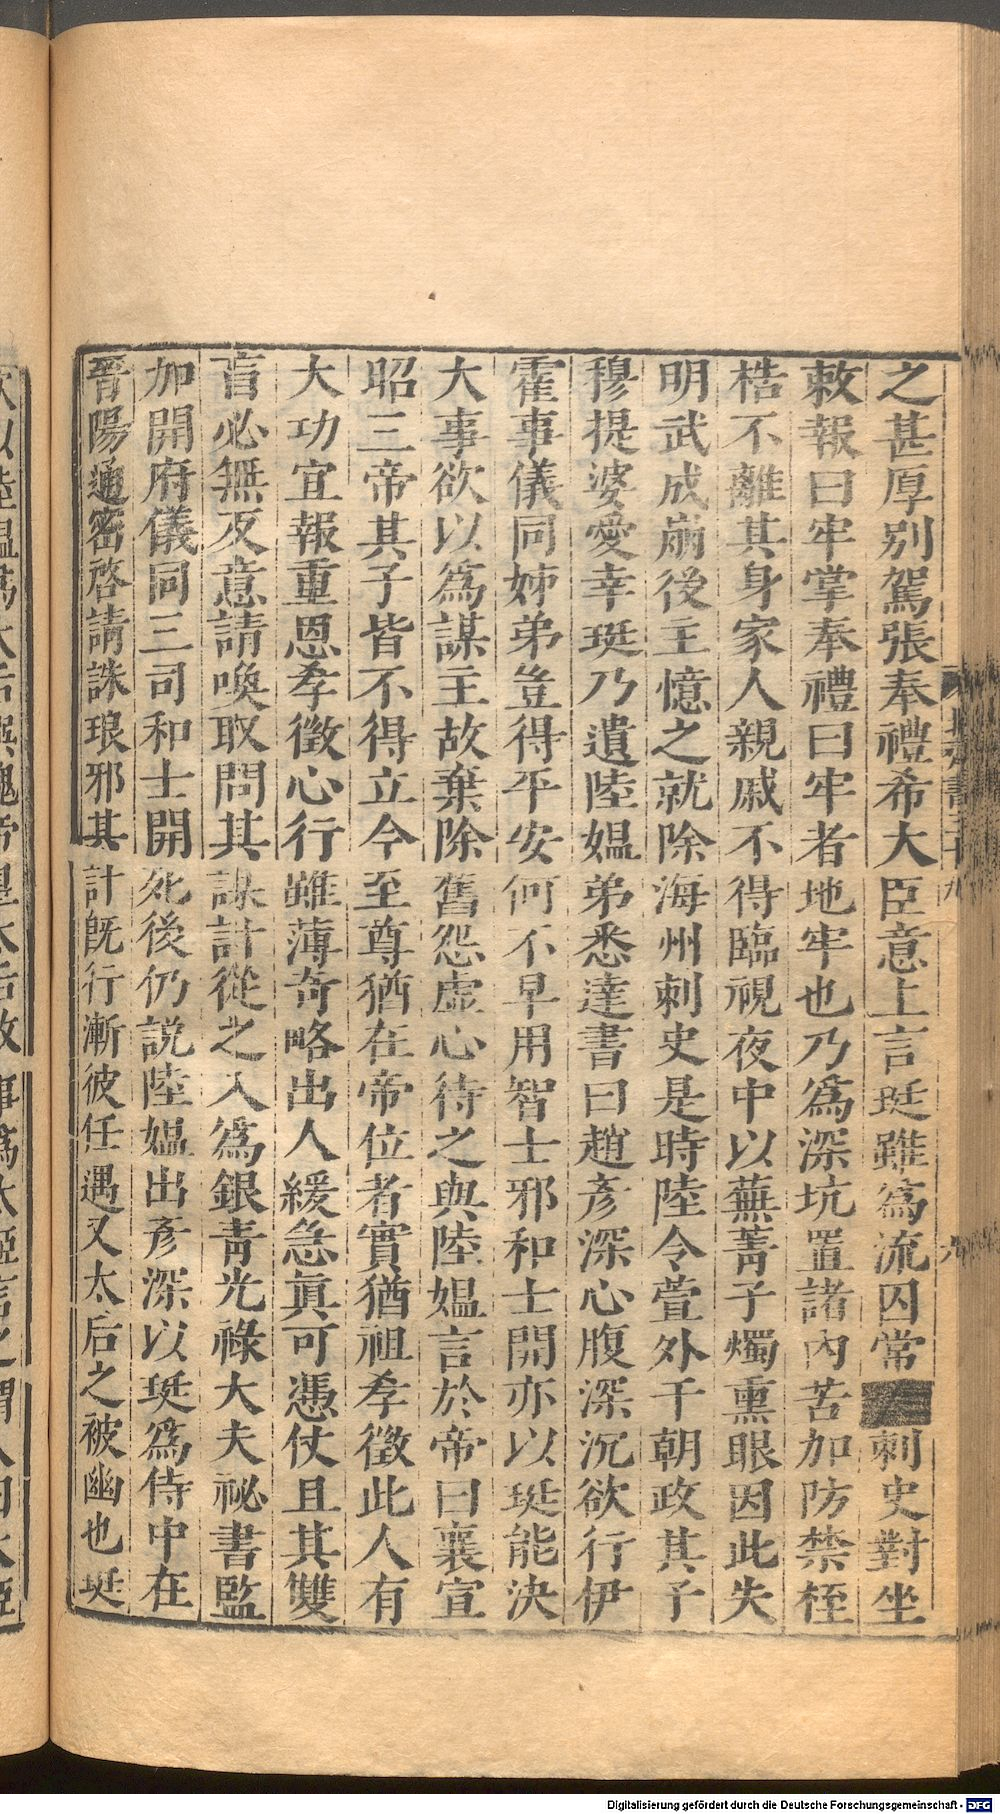 之甚厚別駕張奉禮希大臣意上言珽雖為流囚常刺史對坐
敕報曰牢掌奉禮曰牢者地牢也乃為深坑置諸內苦加防禁桎
梏不離其身家人親戚不得臨視夜中以蕪菁子燭熏眼因此失
明武成崩後主憶之就除海州刺史是時陸令萱外干朝政其子
穆提婆愛幸珽乃遺陸媼弟悉達書曰趙彥深心腹深沉欲行伊
霍事儀同姊弟豈得平安何不早用智士邪和士開亦以珽能決
大事欲以為謀主故棄除舊怨虛心待之與陸媼言於帝曰襄宣
昭三帝其子皆不得立今至尊猶在帝位者實猶祖孝徵此人有
大功宜報重恩孝徵心行雖薄奇略出人緩急真可憑仗且其雙
盲必無反意請喚取問其謀計從之入為銀青光祿大夫祕書監
加開府儀同三司和士開死後仍說陸媼出彥深以珽為侍中在
晉陽通密啓請誅琅邪其計既行漸彼任遇又太后之被幽也珽
Digitalisierung gefördert durch die Deutsche Forschungsgemeinschaft - DFG